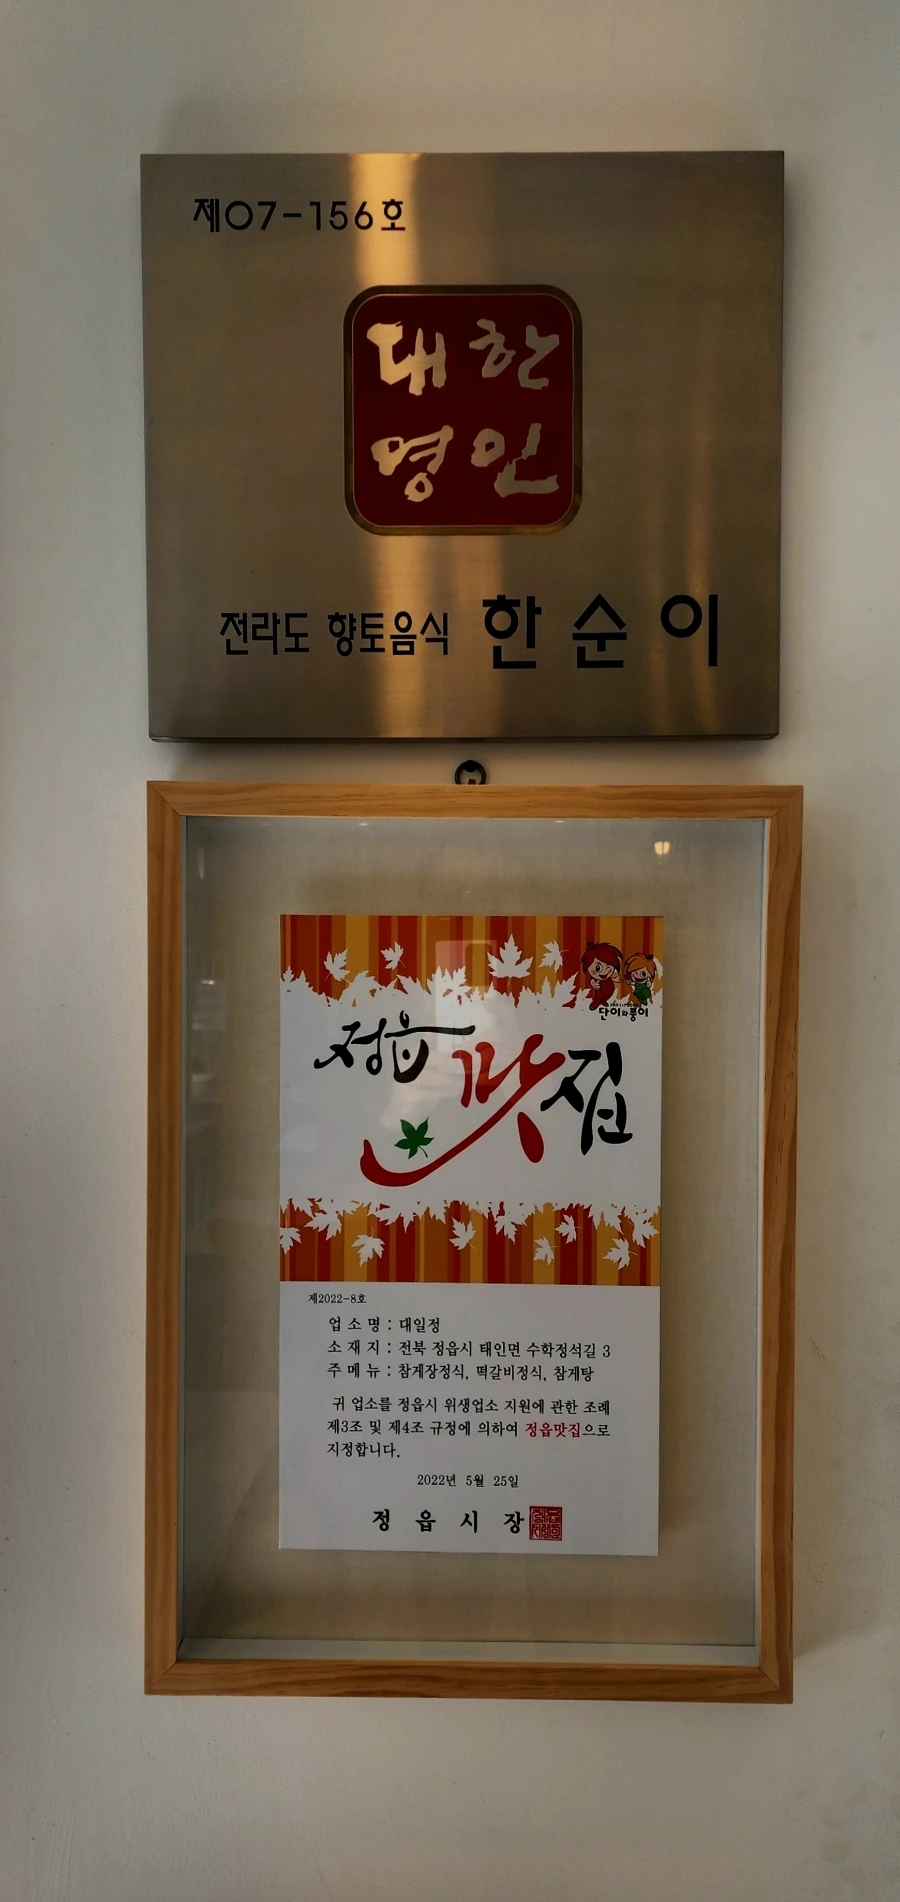 제07-156호
대한
명인
전라도 향토음식 한순이
단이와풍이
정읍 맛집
제2022-8호
업 소 명 : 대일정
소 재 지 : 전북 정읍시 태인면 수학정석길 3
주 메 뉴 : 참게장정식, 떡갈비정식, 참게탕
귀 업소를 정읍시 위생업소 지원에 관한 조례
제3조 및 제4조 규정에 의하여 정읍맛집으로
지정합니다.
2022년 5월 25일
정 읍 시 장